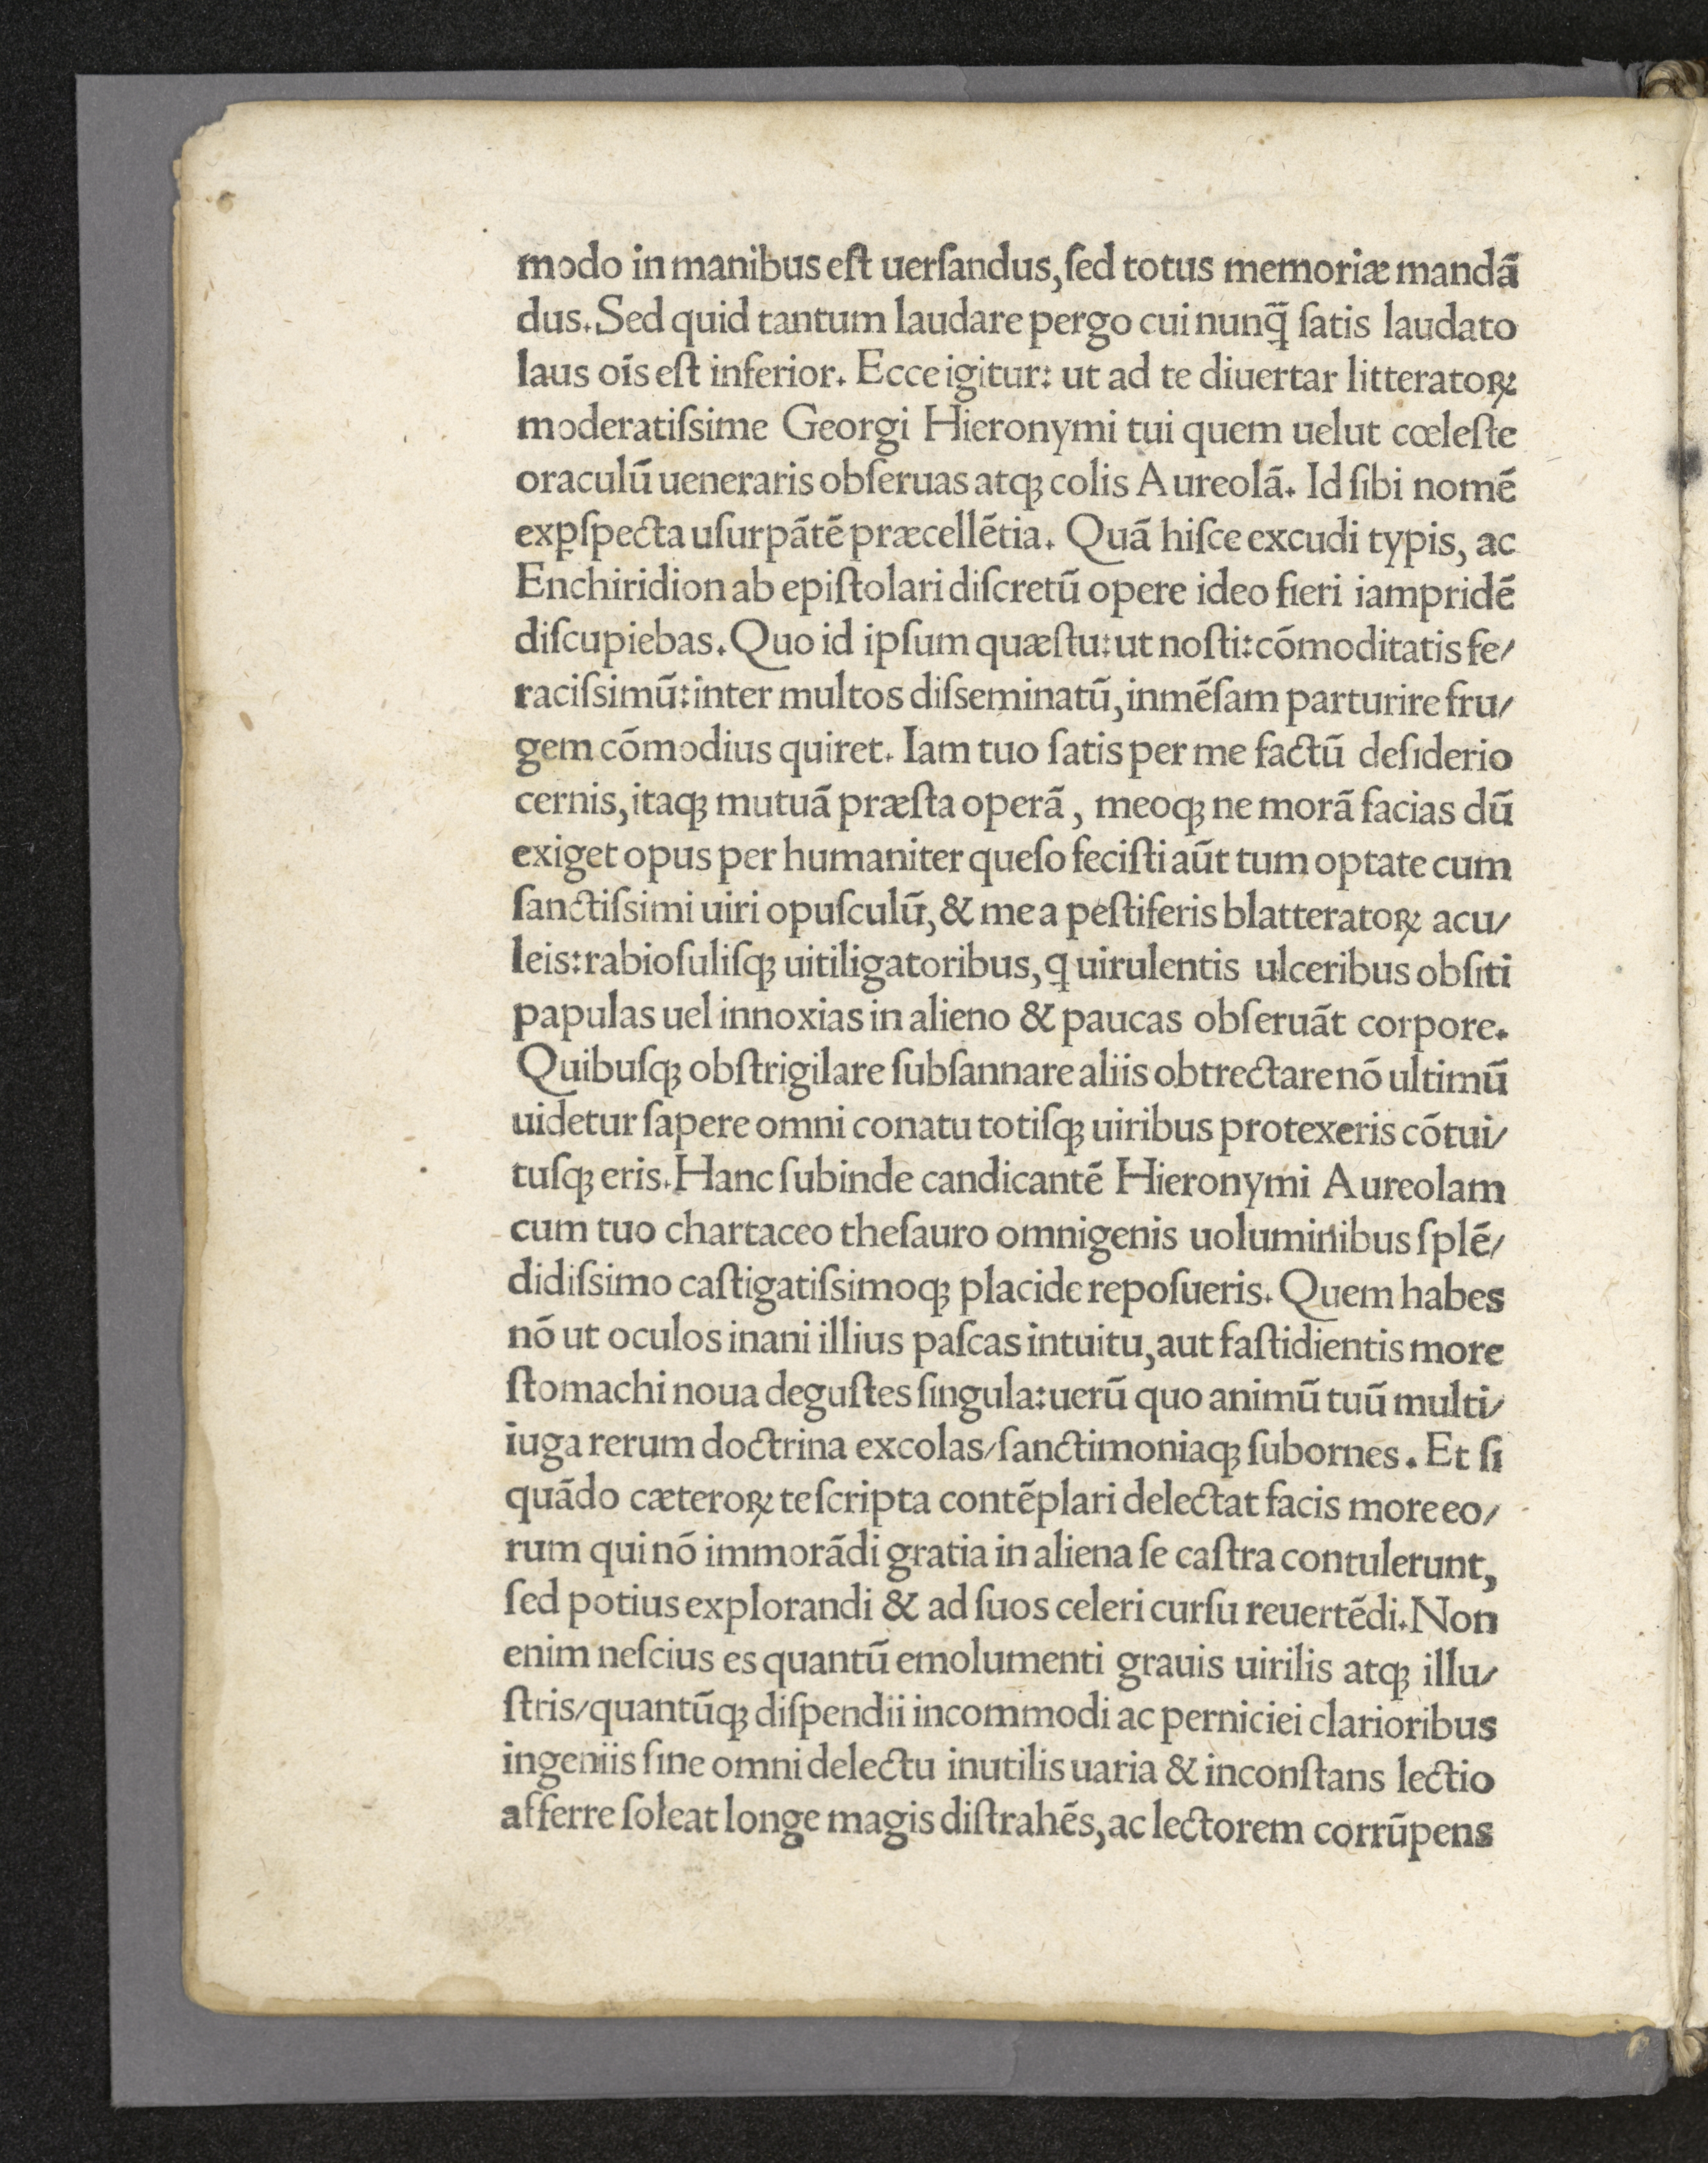 modo in manibus eſt uerſandus, ſed totus memoriæ mandā
dus. Sed quid tantum laudare pergo cui nunq̄ ſatis laudato
laus oīs eſt inferior. Ecce igitur: ut ad te diuertar litteratoꝝ
moderatiſsime Georgi Hieronymi tui quem uelut cœleſte
oraculū ueneraris obſeruas atqꝫ colis Aureolā. Id ſibi nomē
exꝑſpecta uſurpātē præcellētia. Quā hiſce excudi typis, ac
Enchiridion ab epiſtolari diſcretū opere ideo fieri iampridē
diſcupiebas. Quo id ipſum quæſtu: ut noſti: cōmoditatis fe/
raciſsimū: inter multos diſseminatū, inmēſam parturire fru/
gem cōmodius quiret. Iam tuo ſatis per me factū deſiderio
cernis, itaqꝫ mutuā præſta operā, meoqꝫ ne morā facias dū
exiget opus per humaniter queſo feciſti aūt tum optate cum
ſanctiſsimi uiri opuſculū, & me a peſtiferis blatteratoꝝ acu/
leis: rabioſuliſqꝫ uitiligatoribus, ꝗ uirulentis ulceribus obſiti
papulas uel innoxias in alieno & paucas obſeruāt corpore.
Quibuſqꝫ obſtrigilare ſubſannare aliis obtrectare nō ultimū
uidetur ſapere omni conatu totiſqꝫ uiribus protexeris cōtui/
tuſqꝫ eris. Hanc ſubinde candicantē Hieronymi Aureolam
cum tuo chartaceo theſauro omnigenis uoluminibus ſplē/
didiſsimo caſtigatiſsimoqꝫ placide repoſueris. Quem habes
nō ut oculos inani illius paſcas intuitu, aut faſtidientis more
ſtomachi noua deguſtes ſingula: uerū quo animū tuū multi/
iuga rerum doctrina excolas/ſanctimoniaqꝫ ſubornes. Et ſi
quādo cæteroꝝ te ſcripta contēplari delectat facis more eo/
rum qui nō immorādi gratia in aliena ſe caſtra contulerunt,
ſed potius explorandi & ad ſuos celeri curſu reuertēdi. Non
enim neſcius es quantū emolumenti grauis uirilis atqꝫ illu/
ſtris/quantūqꝫ diſpendii incommodi ac perniciei clarioribus
ingeniis ſine omni delectu inutilis uaria & inconſtans lectio
afferre ſoleat longe magis diſtrahēs, ac lectorem corrūpens